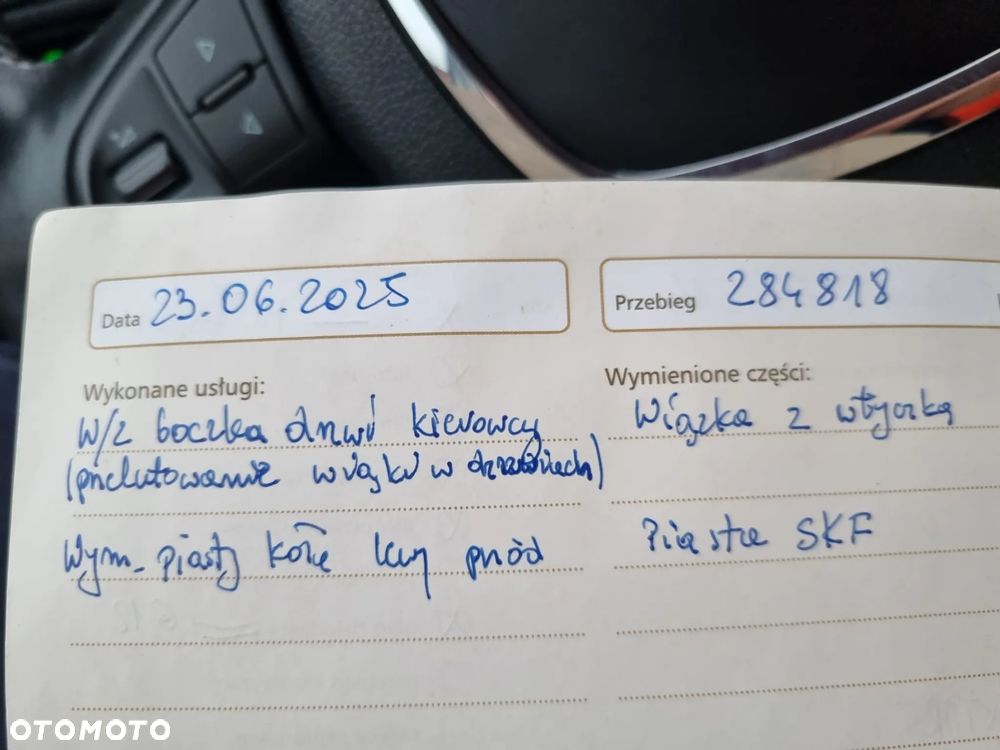 Data 23.06.2025
Przebieg 284818
Wykonane usługi:
W/z boczka drzwi kierowcy
(przelutowanie wiązki w drzwiach)
Wym. piasty koła lewy przód
Wymienione części:
Wiązka z wtyczką
Piasta SKF
OTOMOTO